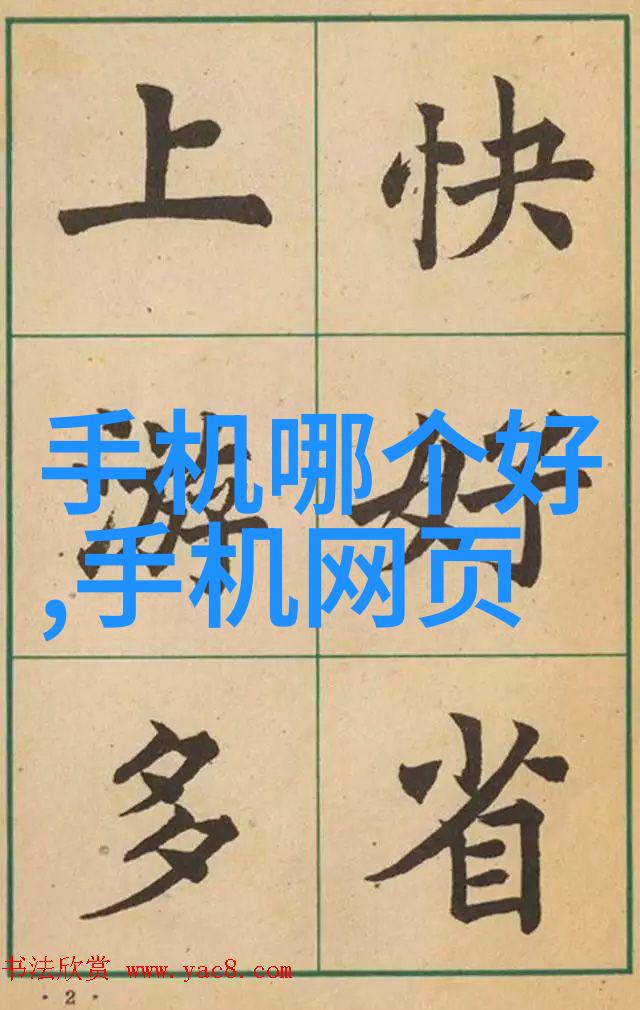 上游多
快好省
手机哪个好
,手机网页
书法欣赏 www.yac8.com
· 2 ·